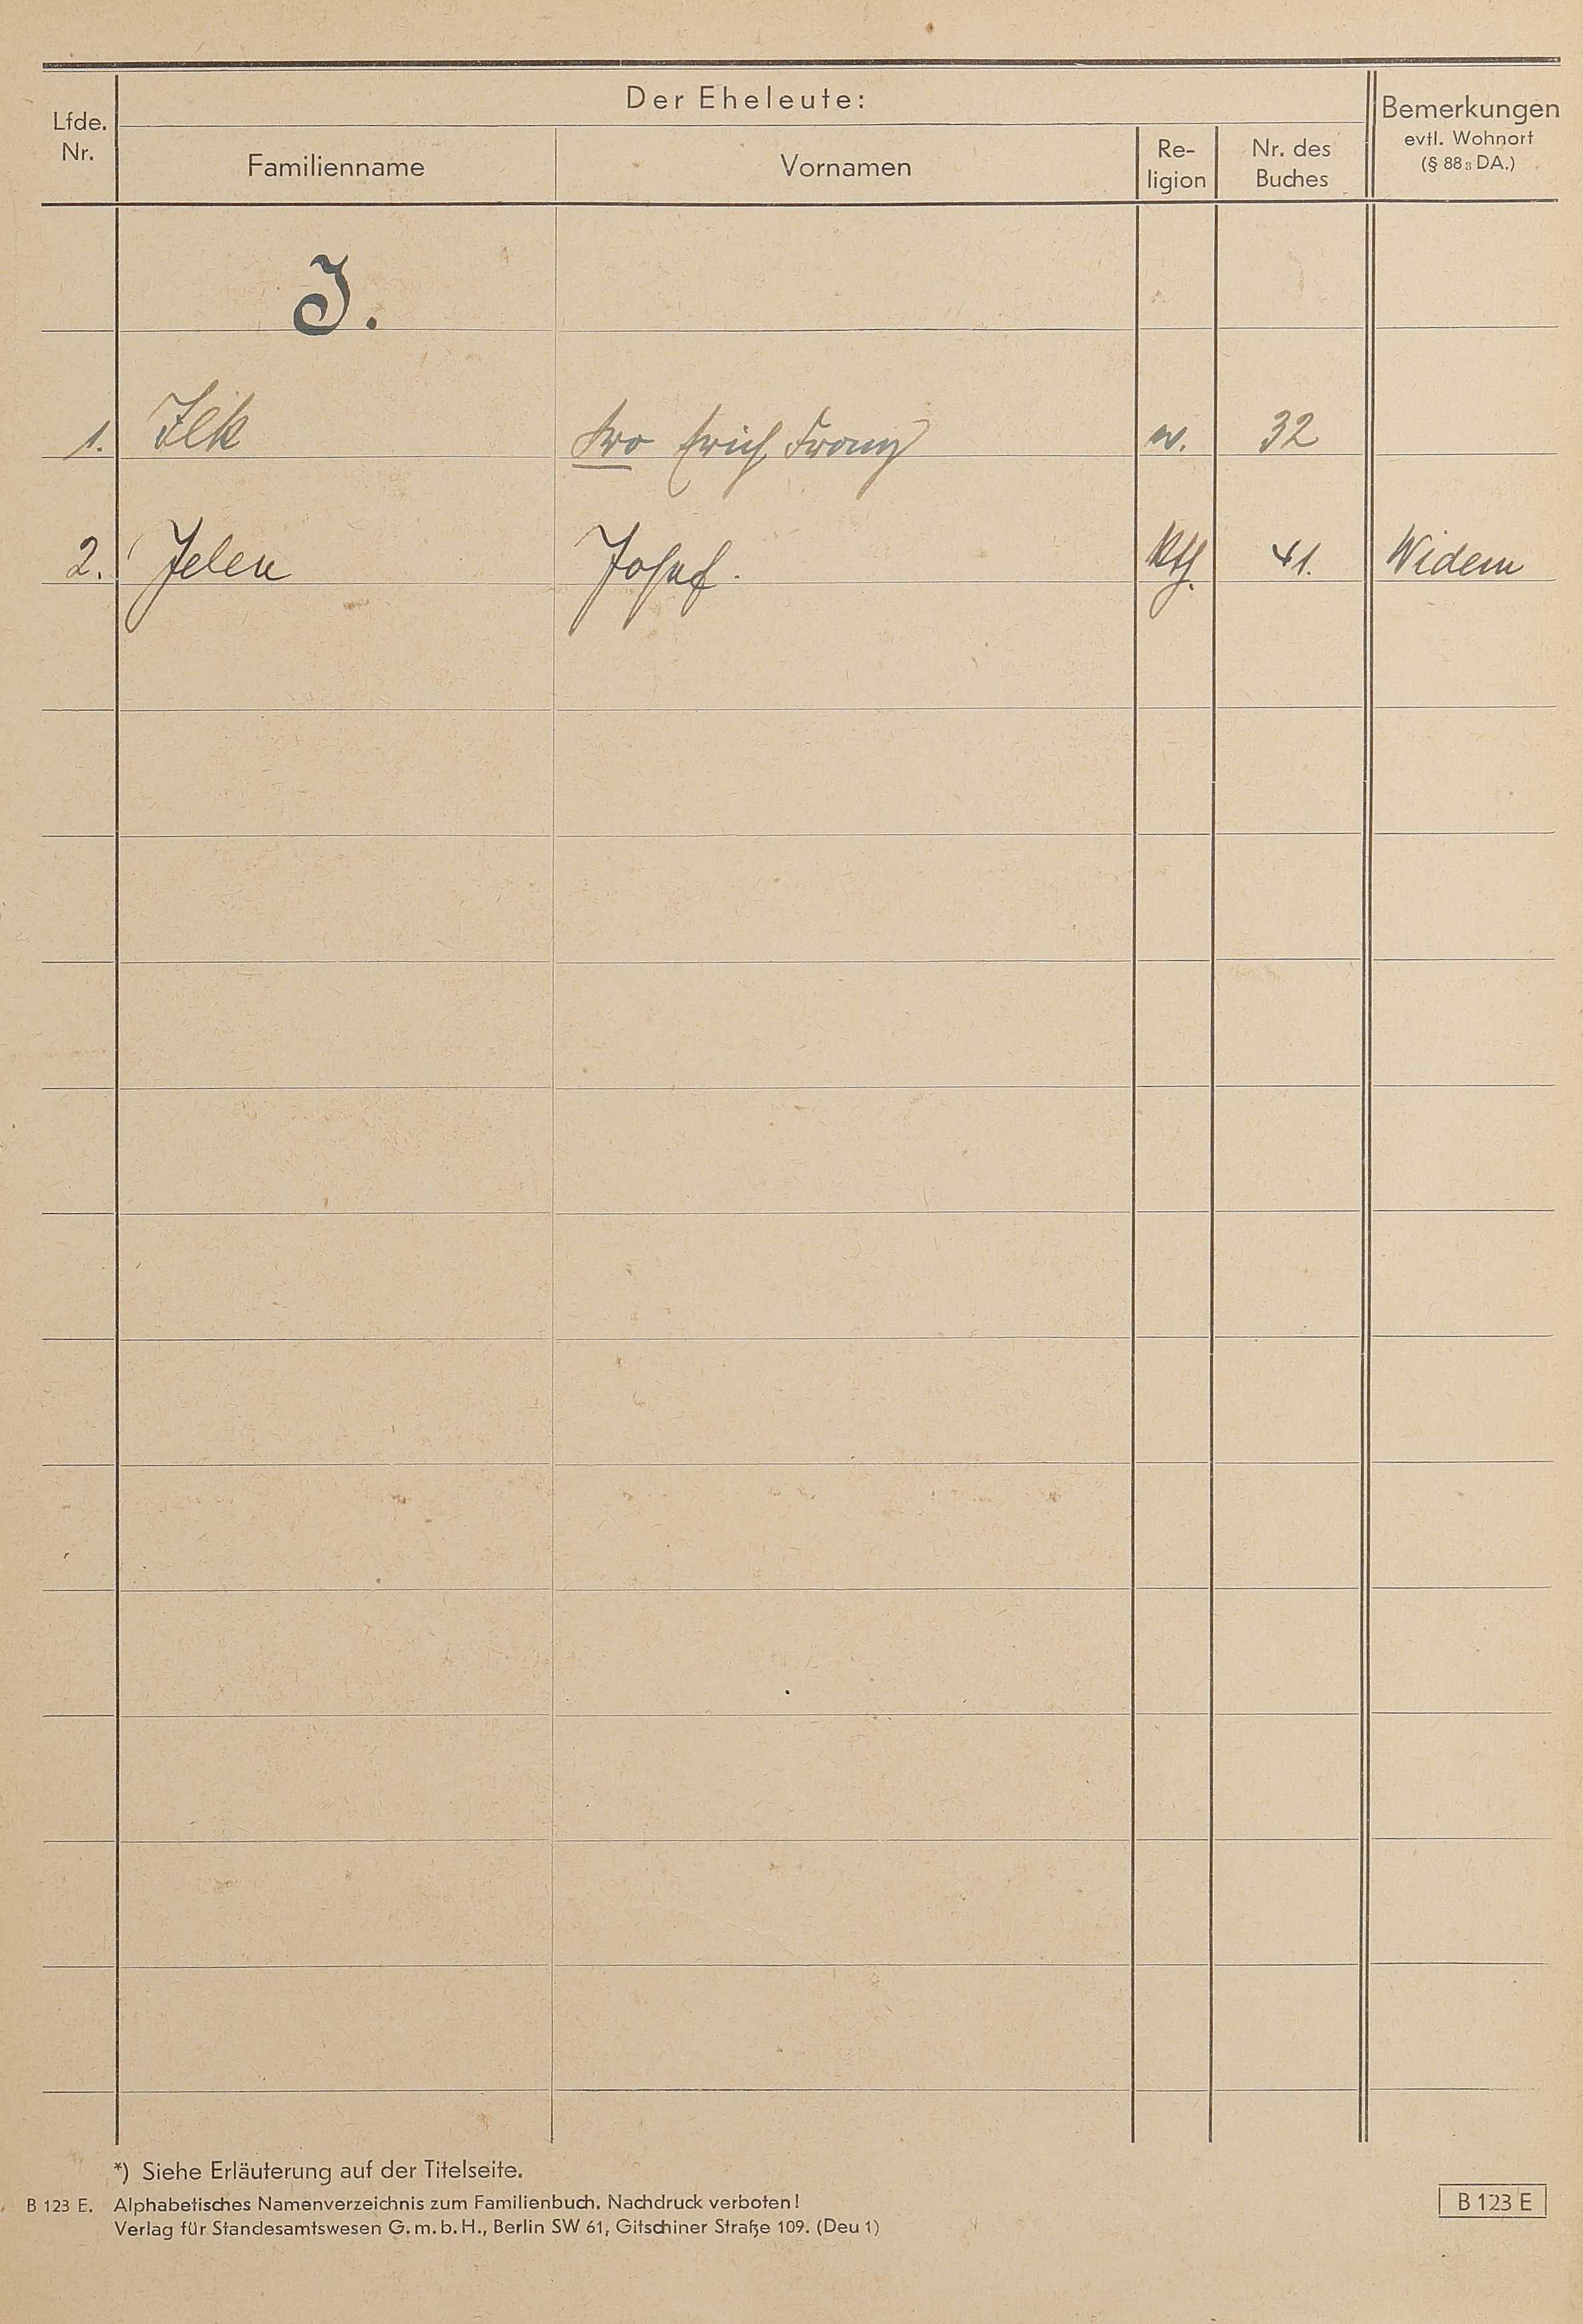 Der Eheleute:
Lfde. Nr.
Familienname
Vornamen
Re-
ligion
Nr. des
Buches
Bemerkungen
evtl. Wohnort
(§ 88 3 DA.)
J.
1. Ilk Ivo Erich Franz 32
2. Jelen Josef. kth. 41. Widem
*) Siehe Erläuterung auf der Titelseite.
B 123 E. Alphabetisches Namenverzeichnis zum Familienbuch. Nachdruck verboten!
Verlag für Standesamtswesen G.m.b.H., Berlin SW 61, Gitschiner Straße 109. (Deu 1)
B 123 E